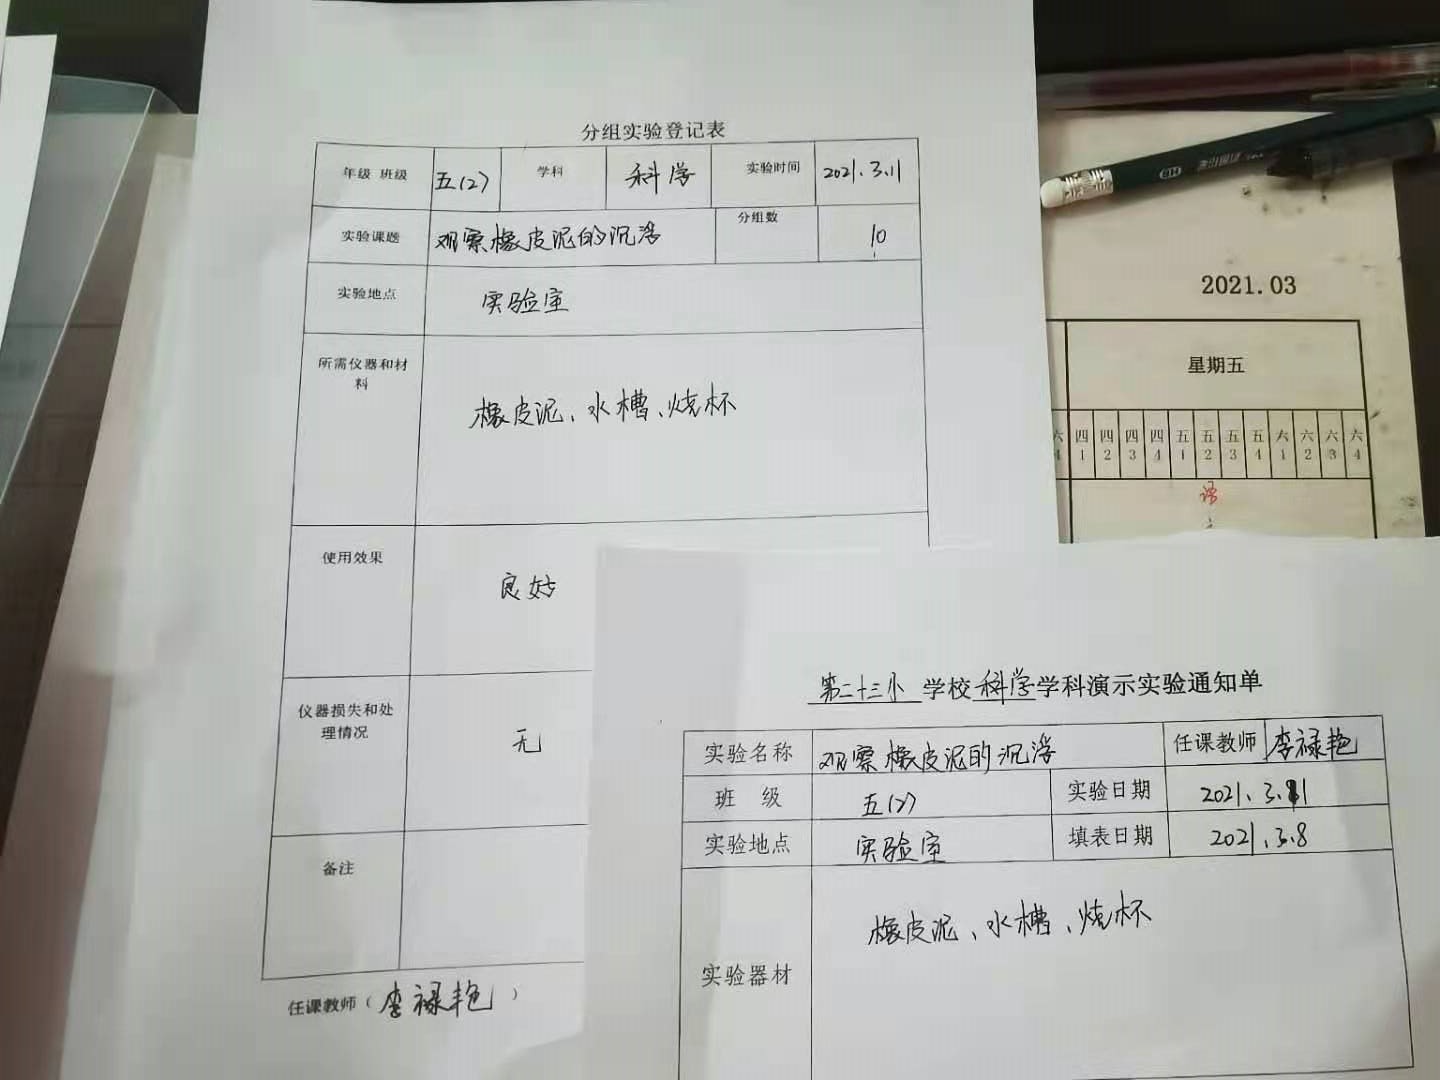 分组实验登记表
年级 班级 五(2) 学科 科学 实验时间 2021.3.11
实验课题 观察橡皮泥的沉浮 分组数 10
实验地点 实验室
所需仪器和材
料
橡皮泥、水槽、烧杯
使用效果 良好
仪器损失和处
理情况
无
备注
任课教师（李禄艳）
2021.03
星期五
六 四 四 四 四 五 五 五 五 六 六 六 六
4 1 2 3 4 1 2 3 4 1 2 3 4
HB
第二十三小 学校 科学 学科演示实验通知单
实验名称 观察橡皮泥的沉浮 任课教师 李禄艳
班 级 五(2) 实验日期 2021.3.11
实验地点 实验室 填表日期 2021.3.8
实验器材 橡皮泥、水槽、烧杯